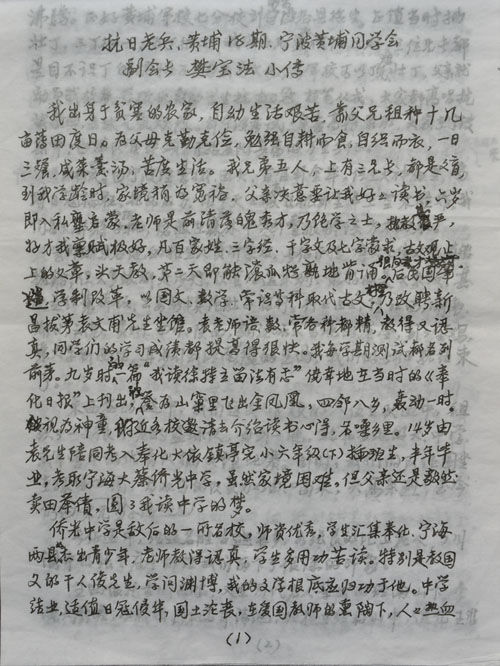 抗日老兵、黄埔18期、宁波黄埔同学会
副会长 樊宝法 小传
我出身于贫寒的农家,自幼生活艰苦,靠父兄租种十几
亩薄田度日。在父母克勤克俭,勉强自耕而食,自织而衣,一日
三餐,咸菜薯汤,苦度生活。我兄弟五人,上有三兄长,都是文盲,
到我学龄时,家境稍为宽裕,父亲决意要让我好好读书,六岁
即入私塾启蒙,老师是前清落自秀才,乃饱学之士,教严,
好才我禀赋极好,凡百家姓、三字经、千字文及七字蒙求、古文观止
上的文章,当天教,第二天即能滚瓜烂熟地背诵。后民国
学制改革,以国文、数学、常识等科取代古文,乃改聘新
昌拔茅袁文甫先生坐馆。袁老师语、数、常各科都精,教得又认
真,同学们的学习成绩都提高得很快。我每学期测试都名列
前茅。九岁时的一篇“我读徐特立留法有志”侥幸地在当时的《奉
化日报》上刊出,在山窠里飞出金凤凰,四邻八乡,轰动一时。
被视为神童,附近各校邀请去介绍读书心得,名噪乡里。14岁由
袁先生陪同考入奉化大依镇亭完小六年级(下)插班生,半年毕
业,考取宁海大蔡侨光中学,虽然家境困难。但父亲还是毅然
卖田举债,圆了我读中学的梦。
侨光中学是敌后的一所名校。师资优秀,学生汇集奉化、宁海
两县杰出青少年,老师教得认真,学生多用功苦读。特别是教国
文的干人俊先生,学问渊博,我的文学根底应归功于他。中学
结业,适值日寇侵华,国土沦丧,在爱国教师的熏陶下,人人热血
(1)
(2)